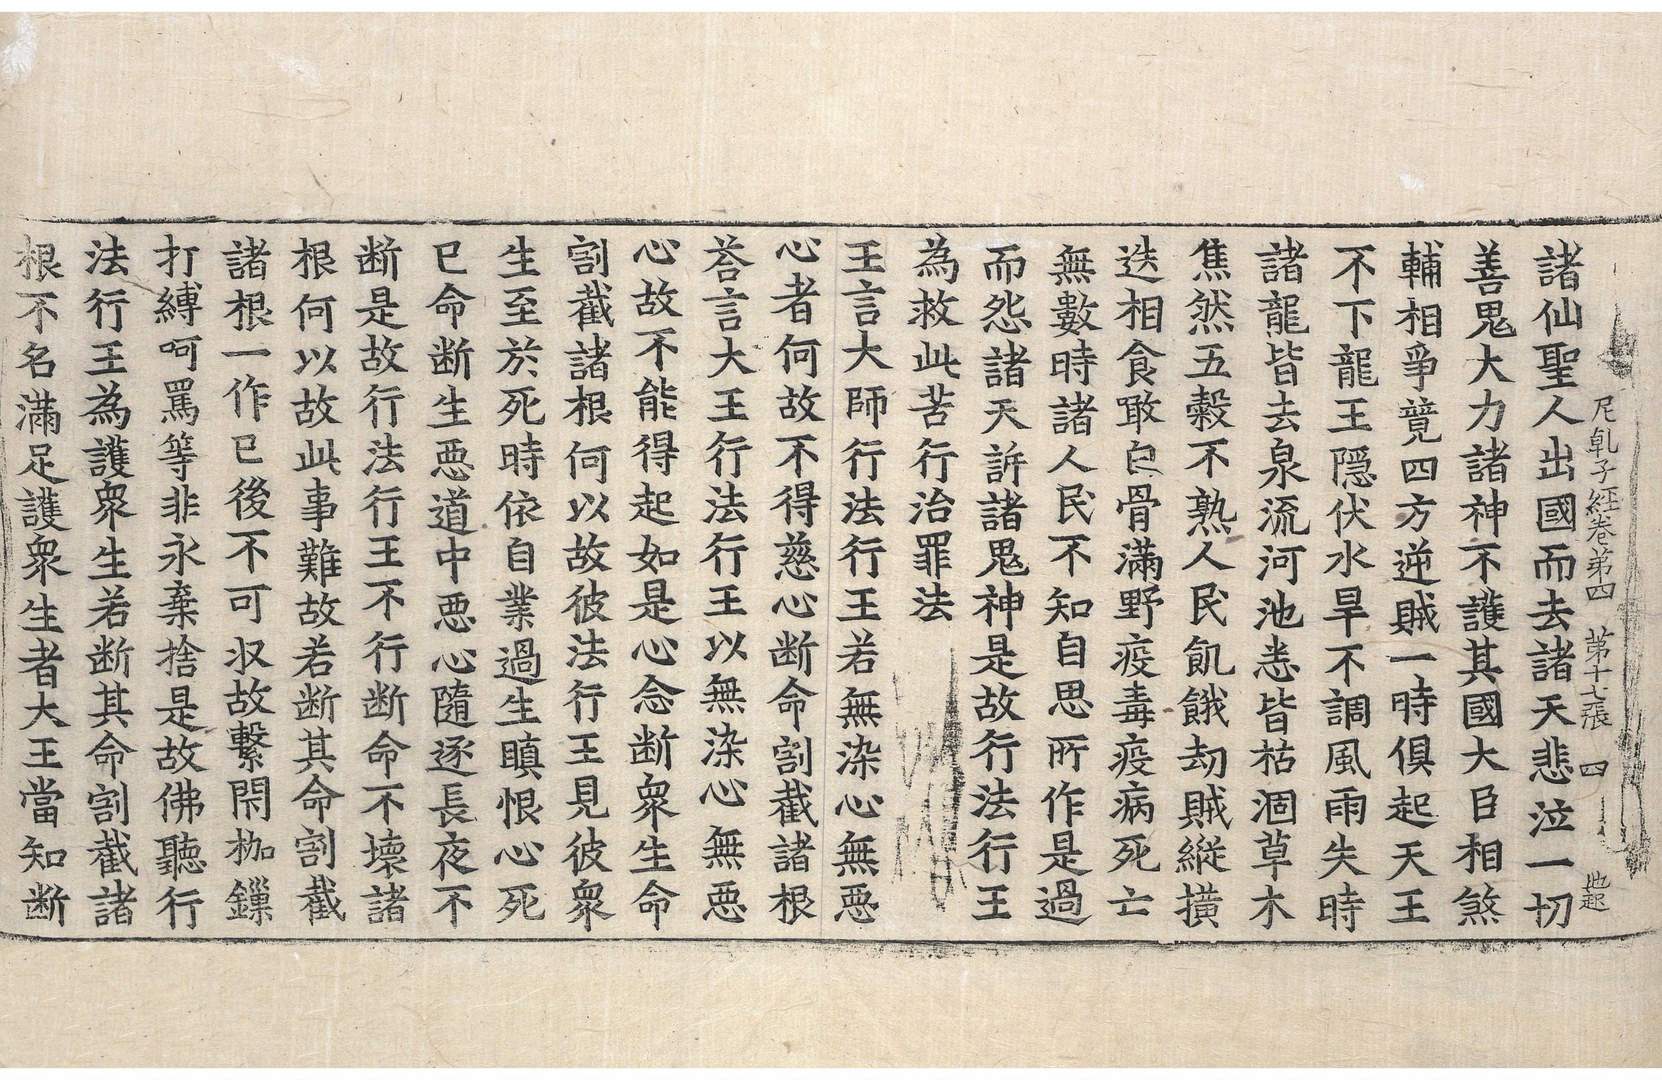 尼乹子經卷第四　第十七張　四　地起
諸仙聖人出國而去諸天悲泣一切
善鬼大力諸神不護其國大臣相煞
輔相爭竟四方逆賊一時俱起天王
不下龍王隱伏水旱不調風雨失時
諸龍皆去泉流河池悉皆枯涸草木
焦然五穀不熟人民飢餓劫賊縱橫
迭相食噉白骨滿野疫毒疫病死亡
無數時諸人民不知自思所作是過
而怨諸天訴諸鬼神是故行法行王
為救此苦行治罪法
王言大師行法行王若無染心無惡
心者何故不得慈心断命割截諸根
荅言大王行法行王以無染心無惡
心故不能得起如是心念断衆生命
割截諸根何以故彼法行王見彼衆
生至於死時依自業過生瞋恨心死
已命断生惡道中惡心隨逐長夜不
断是故行法行王不行断命不壞諸
根何以故此事難故若断其命割截
諸根一作已後不可収故繫閇枷鏁
打縛呵罵等非永棄捨是故佛聽行
法行王為護衆生若断其命割截諸
根不名滿足護衆生者大王當知断